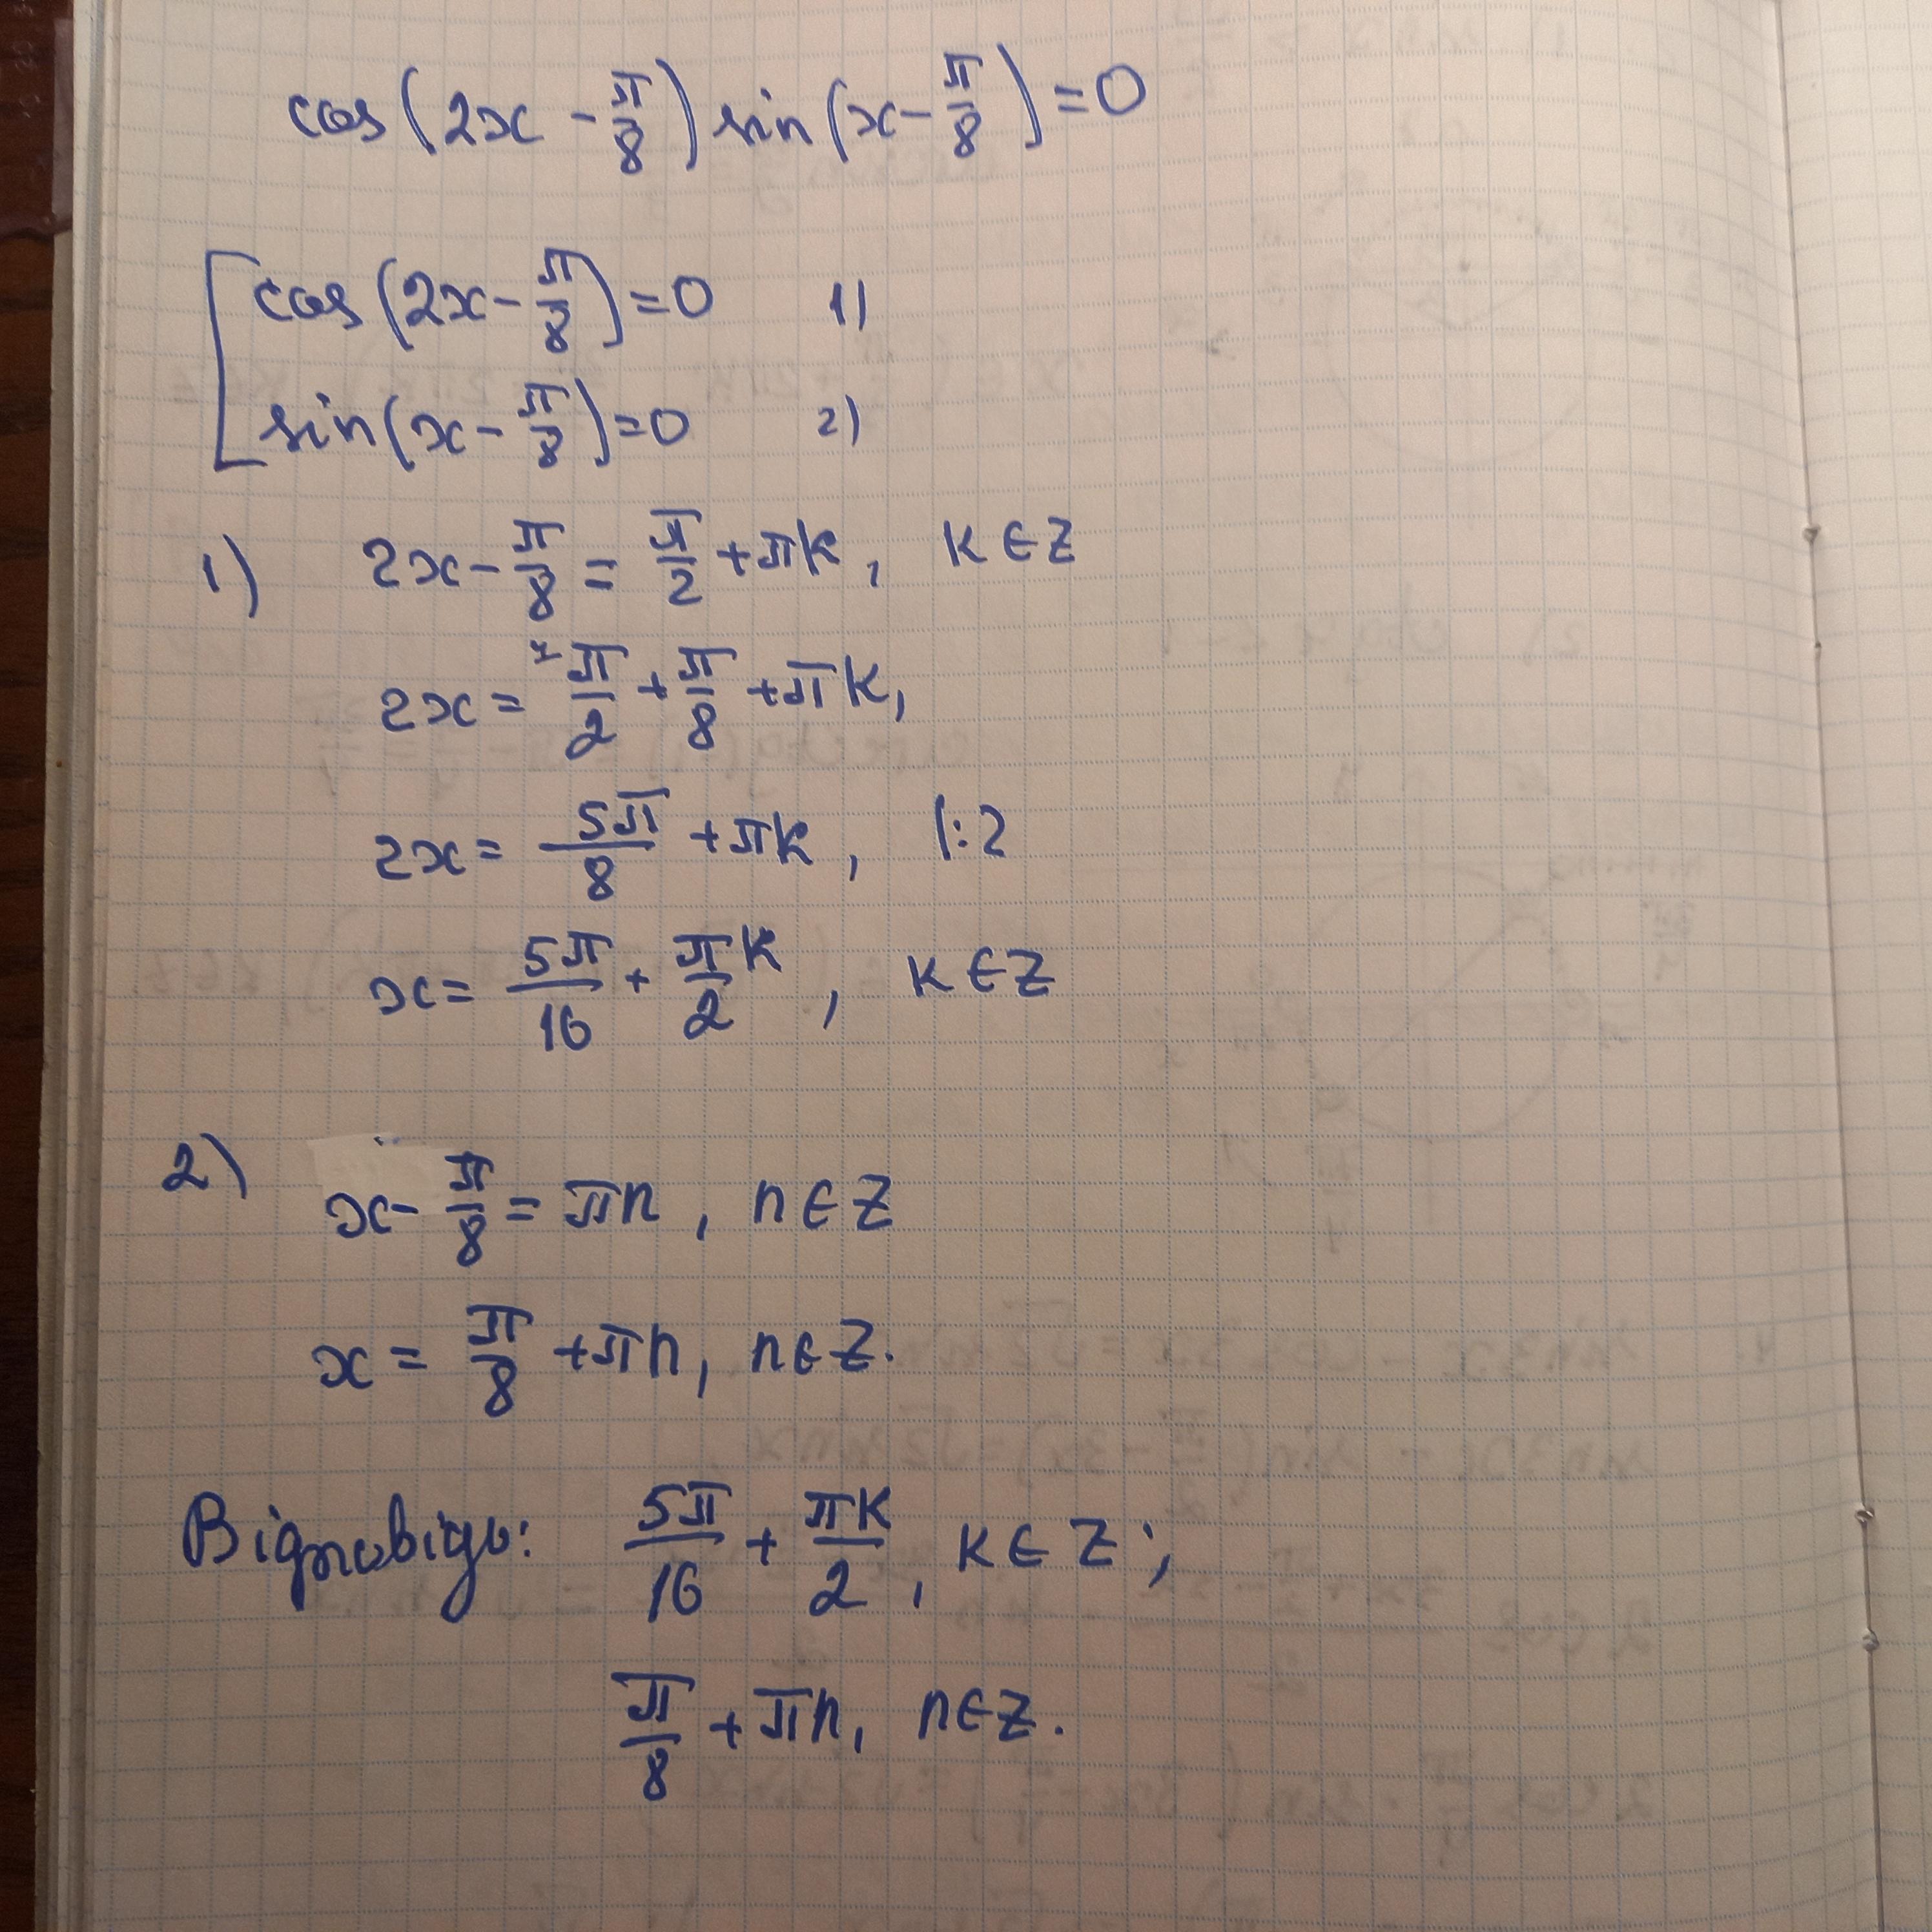 cos(2x - π/8) sin(x - π/8) = 0
cos(2x - π/8) = 0 1)
sin(x - π/8) = 0 2)
1) 2x - π/8 = π/2 + πk, k ∈ Z
2x = ⁴π/2 + π/8 + πk,
2x = 5π/8 + πk, |:2
x = 5π/16 + π/2 k, k ∈ Z
2) x - π/8 = πn, n ∈ Z
x = π/8 + πn, n ∈ Z.
Відповідь: 5π/16 + πk/2, k ∈ Z;
π/8 + πn, n ∈ Z.